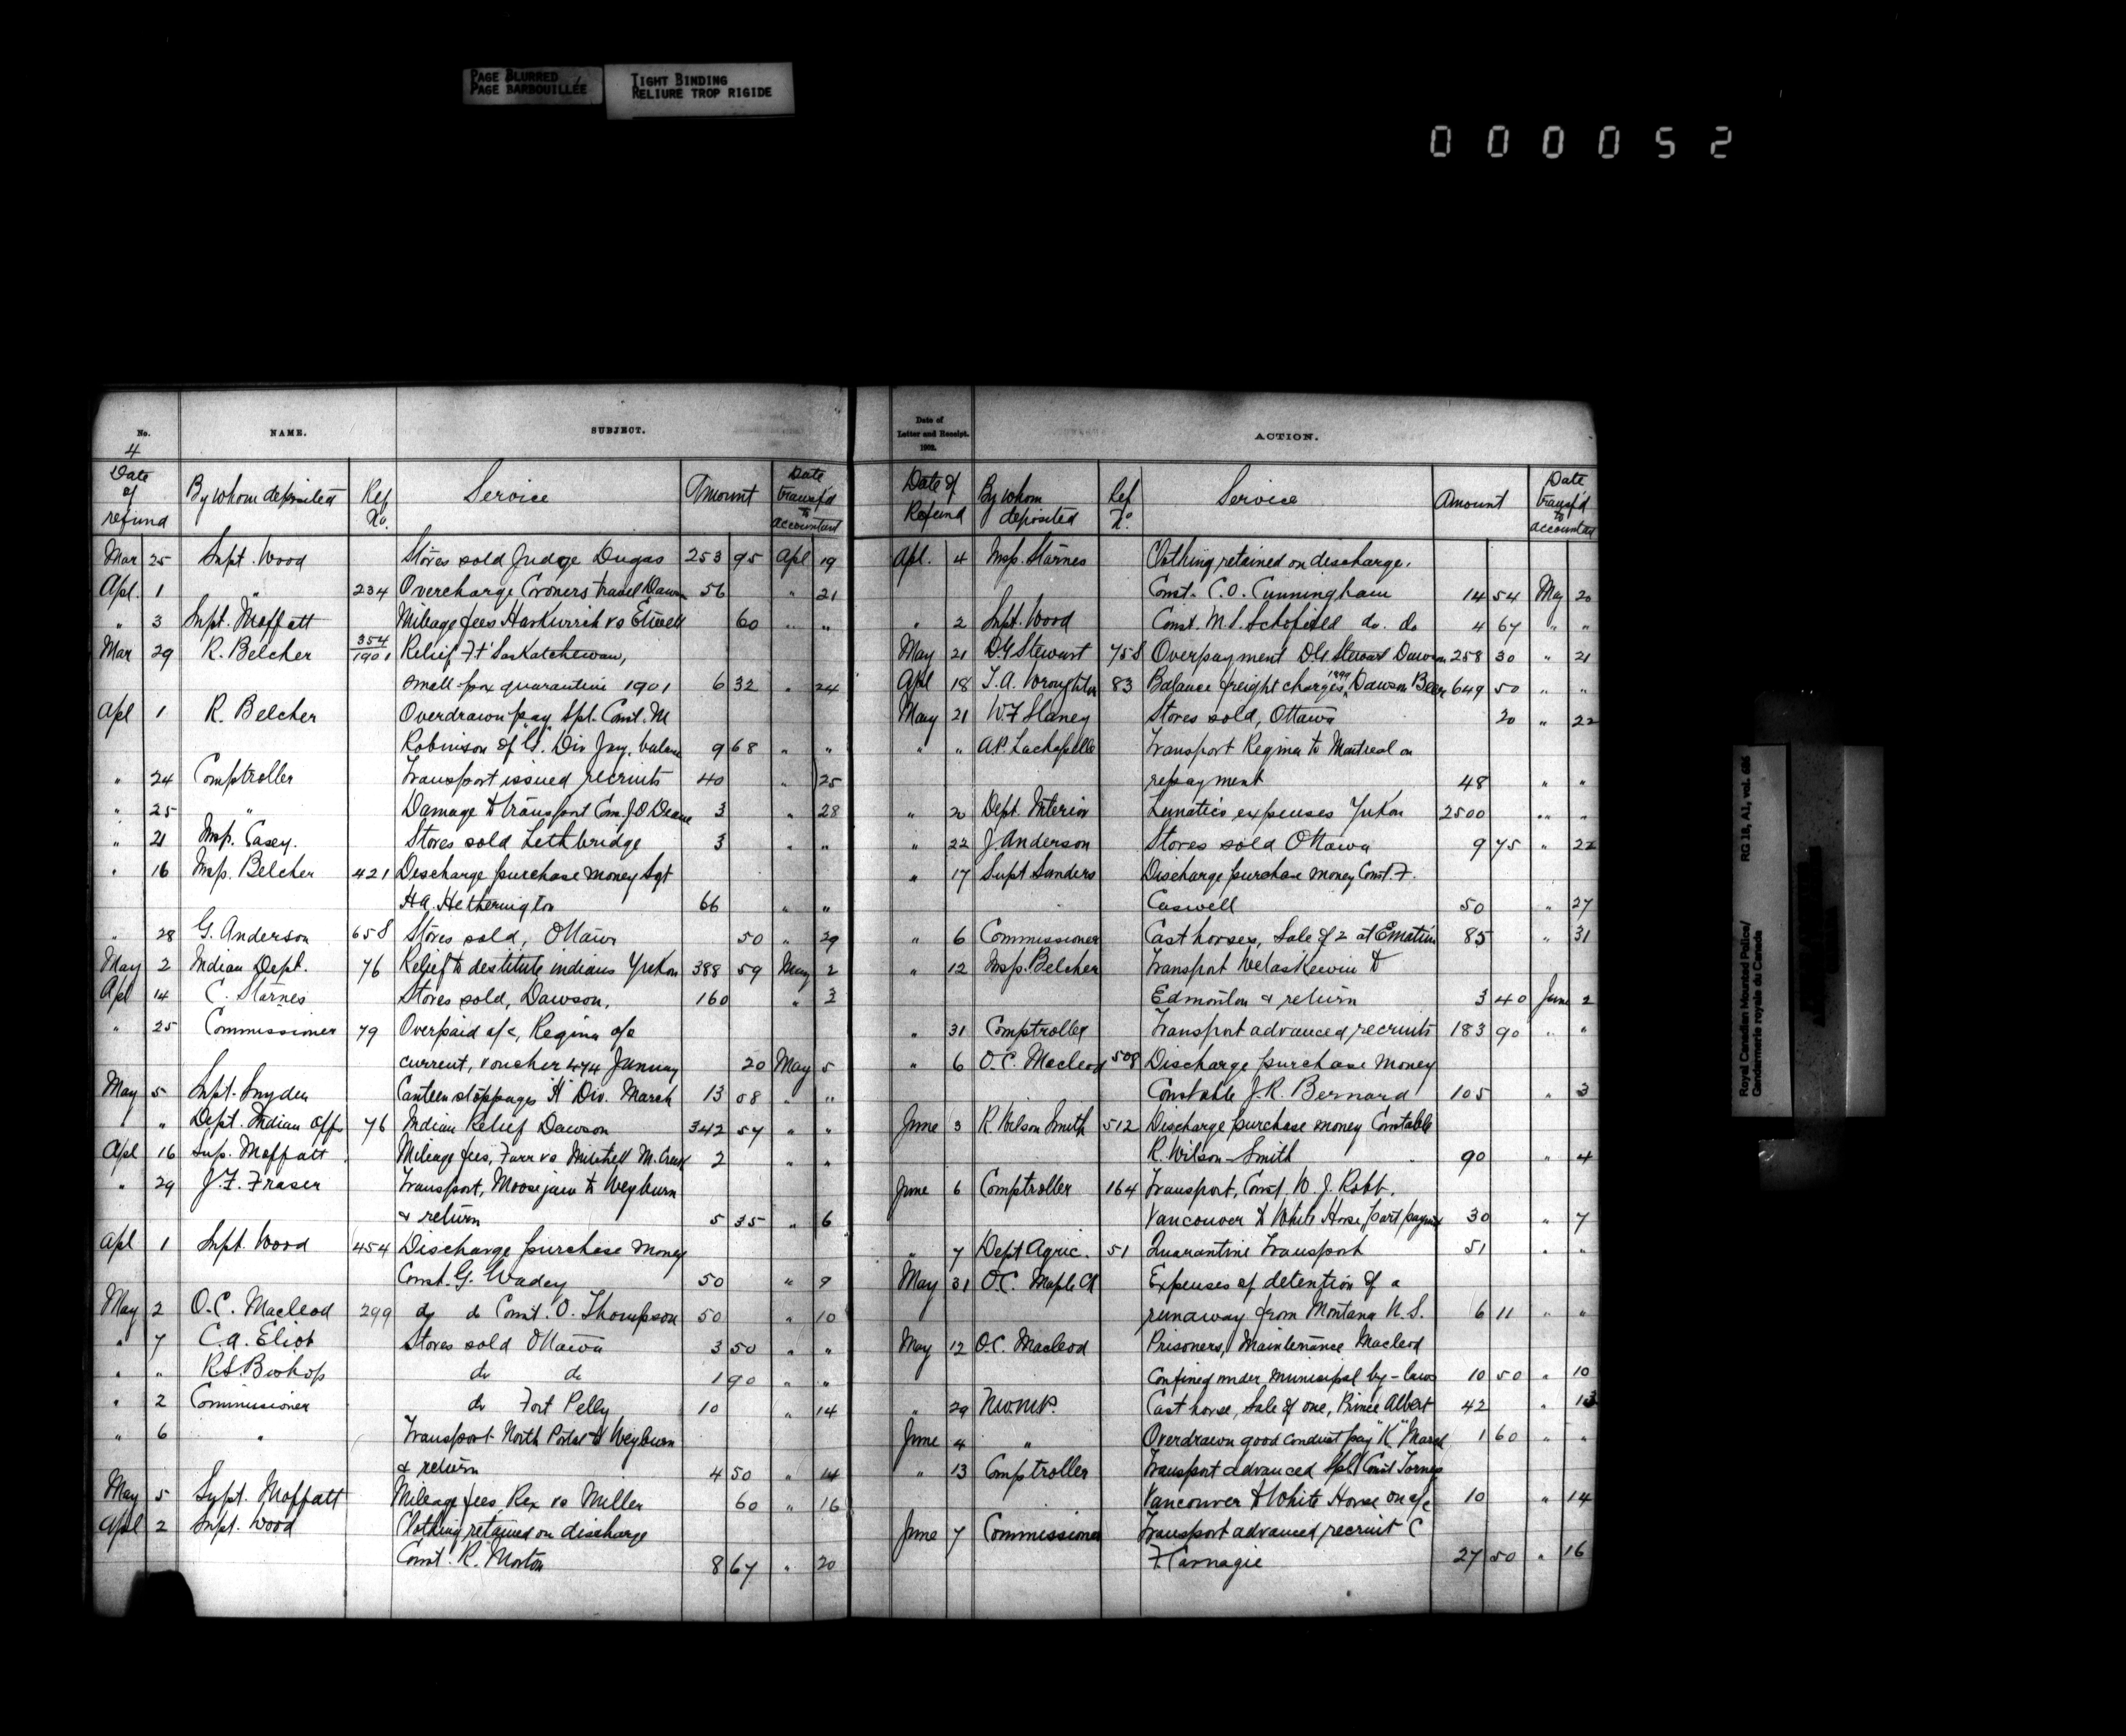 PAGE BLURRED
PAGE BARBOUILLÉE
TIGHT BINDING
RELIURE TROP RIGIDE
000052
No. NAME. SUBJECT.
4
Date of refund By whom deposited Ref No. Service Amount Date transf'd to accountant
Mar 25 Supt. Wood Stores sold Judge Dugas 253 95 Apl 19
Apl. 1 " 234 Overcharge Coroners travel Dawson 56 " 21
" 3 Supt. Moffatt Mileage fees vs 60 " "
Mar 29 R. Belcher 354/1901 Relief Ft Saskatchewan,
small-pox quarantine 1901 6 32 " 24
Apl 1 R. Belcher Overdrawn pay Spl. Const. M
Robinson of "G" Div Jny. balance 9 68 " "
" 24 Comptroller Transport issued recruits 40 " 25
" 25 " Damage to transport J.D Deane 3 " 28
" 21 Insp. Casey. Stores sold Lethbridge 3 " "
" 16 Insp. Belcher 421 Discharge purchase money Sgt
H.A. Hetherington 66 " "
" 28 G. Anderson 658 Stores sold, Ottawa 50 " 29
May 2 Indian Dept. 76 Relief to destitute indians Yukon 388 59 May 2
Apl 14 C. Starnes Stores sold, Dawson, 160 " 3
" 25 Commissioner 79 Overpaid a/c, Regina a/c
current, voucher 474 January 20 May 5
May 5 Supt. Snyder Canteen stoppages "H" Div. March 13 08 " "
" " Dept. Indian Affs 76 Indian Relief Dawson 342 57 " "
Apl 16 Sup. Moffatt Mileage fees, Farr vs Mitchell M. Creek 2 " "
" 29 J.F. Fraser Transport, Moosejaw to Weyburn
& return 5 35 " 6
Apl 1 Supt. Wood 454 Discharge purchase money
Const. G. Wadey 50 " 9
May 2 O.C. Macleod 299 do do Const. O. Thompson 50 " 10
" 7 C.A. Eliot Stores sold Ottawa 3 50 " "
" " R.S. Bishop do do 1 90 " "
" 2 Commissioner do Fort Pelly 10 " 14
" 6 " Transport North Portal to Weyburn
& return 4 50 " 14
May 5 Supt. Moffatt Mileage fees Rex vs Miller 60 " 16
Apl 2 Supt. Wood Clothing retained on discharge
Const. R. Morton 8 67 " 20
Date of Letter and Receipt. 1902. ACTION.
Date of Refund By whom deposited Ref No. Service Amount Date transf'd to accountant
Apl. 4 Insp. Starnes Clothing retained on discharge.
Const. C.O. Cunningham 14 54 May 20
" 2 Supt. Wood Const. M.S. Schofield do. do 4 67 " "
May 21 D.G Stewart 758 Overpayment D.G. Stewart Dawson 258 30 " 21
Apl 18 T.A. Wroughton 83 Balance freight charges, 1899 Dawson 649 50 " "
May 21 W.F Slaney Stores sold, Ottawa 20 " 22
" " A.P. Lachapelle Transport Regina to Montreal on
repayment 48 " "
" 20 Dept. Interior Lunatics expenses Yukon 2500 " "
" 22 J. Anderson Stores sold Ottawa 9 75 " 22
" 17 Supt Sanders Discharge purchase money Const. F.
Caswell 50 " 27
" 6 Commissioner Cast horses, Sale of 2 at Estevan 85 " 31
" 12 Insp. Belcher Transport Wetaskewin to
Edmonton & return 3 40 June 2
" 31 Comptroller Transport advanced recruits 183 90 " "
" 6 O.C. Macleod 508 Discharge purchase money
Constable J.R. Bernard 105 " 3
June 3 R. Wilson Smith 512 Discharge purchase money Constable
R. Wilson-Smith 90 " 4
June 6 Comptroller 164 Transport, Const. W.J. Robb,
Vancouver to White Horse, part payment 30 " 7
" 7 Dept Agric. 51 Quarantine Transport 51 " "
May 31 O.C. Maple Ck Expenses of detention of a
runaway from Montana U.S. 6 11 " "
May 12 O.C. Macleod Prisoners, Maintenance Macleod
Confined under municipal by-laws 10 50 " 10
" 29 NWMP. Cast horse, Sale of one, Prince Albert 42 " 13
June 4 " Overdrawn good conduct pay "K" March 1 60 " "
" 13 Comptroller Transport advanced Spl. Const
Vancouver to White Horse on a/c 10 " 14
June 7 Commissioner Transport advanced recruit C
F Carnagie 27 50 " 16
Royal Canadian Mounted Police/ RG 18, A1, vol. 686
Gendarmerie royale du Canada